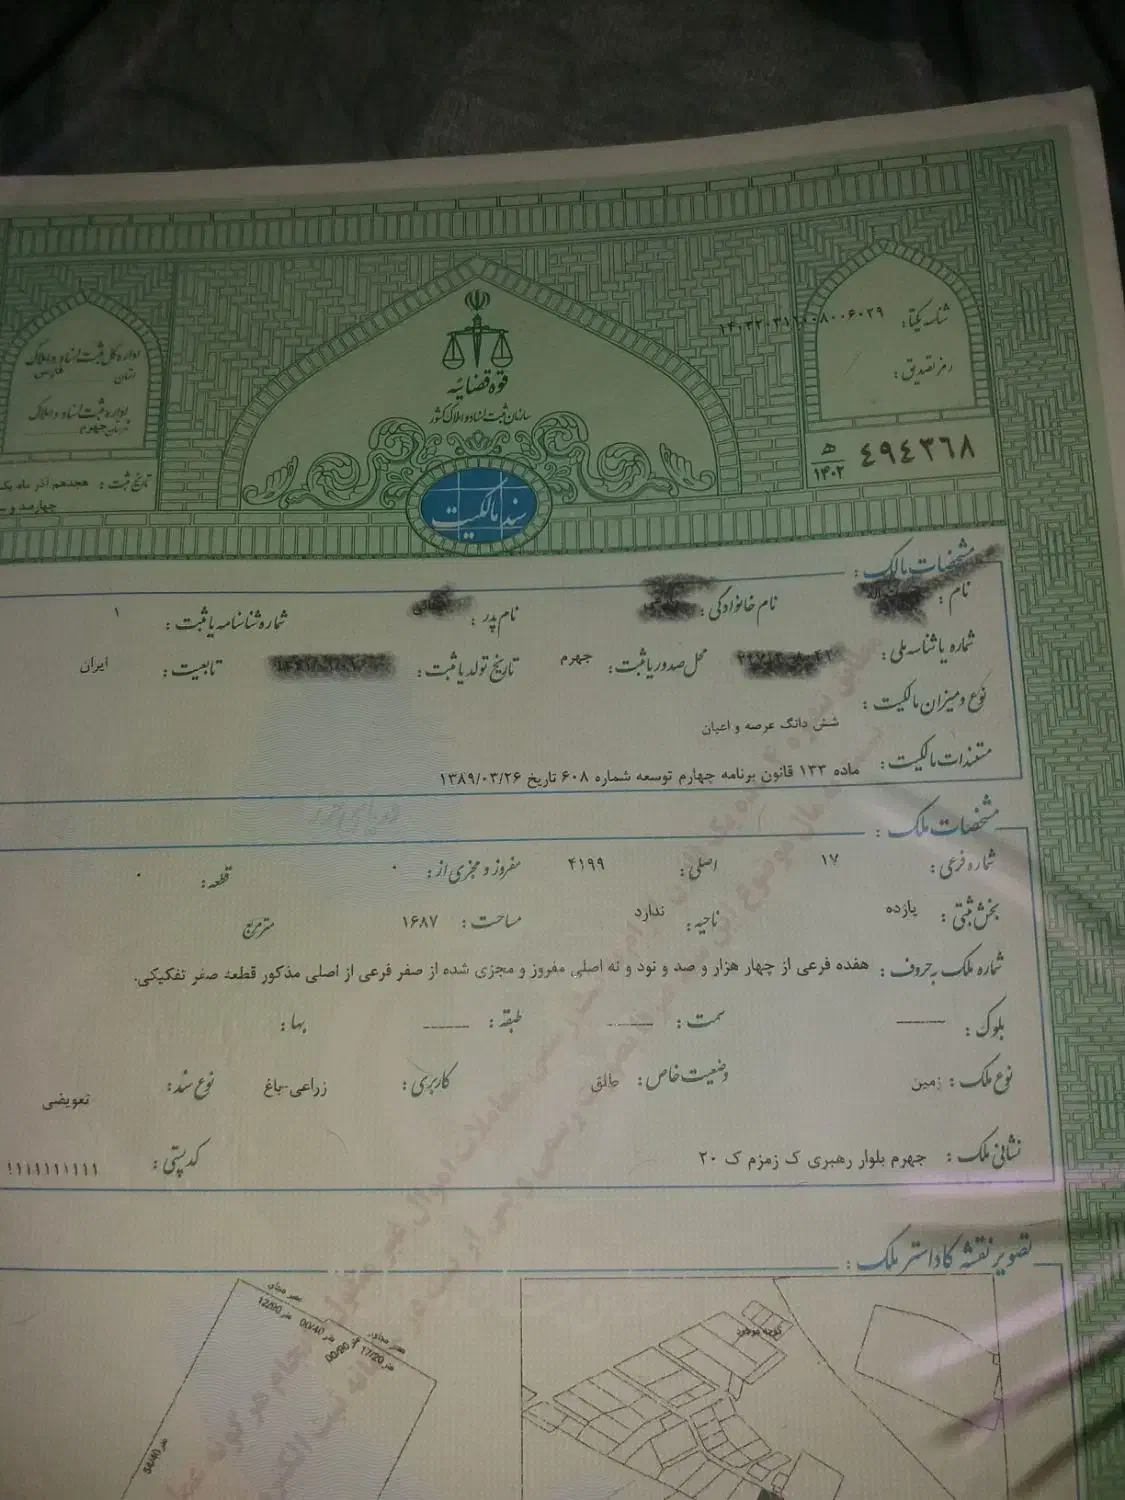 شناسه یکتا: ۱۴۰۲۲۰۳۱۱۰۰۸۰۰۶۰۲۹
رمز تصدیق:
۴۹۴۳۶۸ ه‍ ۱۴۰۲
قوه قضائیه
سازمان ثبت اسناد و املاک کشور
سند مالکیت
اداره کل ثبت اسناد و املاک
استان فارس
اداره ثبت اسناد و املاک
شهرستان جهرم
تاریخ ثبت: هجدهم آذر ماه یک
چهارصد و
مشخصات مالک:
نام: نام خانوادگی: نام پدر: شماره شناسنامه یا ثبت: ۱
شماره یا شناسه ملی: محل صدور یا ثبت: جهرم تاریخ تولد یا ثبت: تابعیت: ایران
نوع و میزان مالکیت: شش دانگ عرصه و اعیان
مستندات مالکیت: ماده ۱۳۳ قانون برنامه چهارم توسعه شماره ۶۰۸ تاریخ ۱۳۸۹/۰۳/۲۶
مشخصات ملک:
شماره فرعی: ۱۷ اصلی: ۴۱۹۹ مفروز و مجزی از: ۰ قطعه: ۰
بخش ثبتی: یازده ناحیه: ندارد مساحت: ۱۶۸۷ مترمربع
شماره ملک به حروف: هفده فرعی از چهار هزار و صد و نود و نه اصلی مفروز و مجزی شده از صفر فرعی از اصلی مذکور قطعه صفر تفکیکی.
بلوک: سمت: طبقه: بها:
نوع ملک: زمین وضعیت خاص: طلق کاربری: زراعی-باغ نوع سند: تعویضی
نشانی ملک: جهرم بلوار رهبری ک زمزم ک ۲۰ کد پستی: ۱۱۱۱۱۱۱۱۱۱
تصویر نقشه کاداستر ملک:
معبر مجازی
12/90 متر
00/40 متر
معبر مجازی
00/90 متر
17/20 متر
54/40 متر